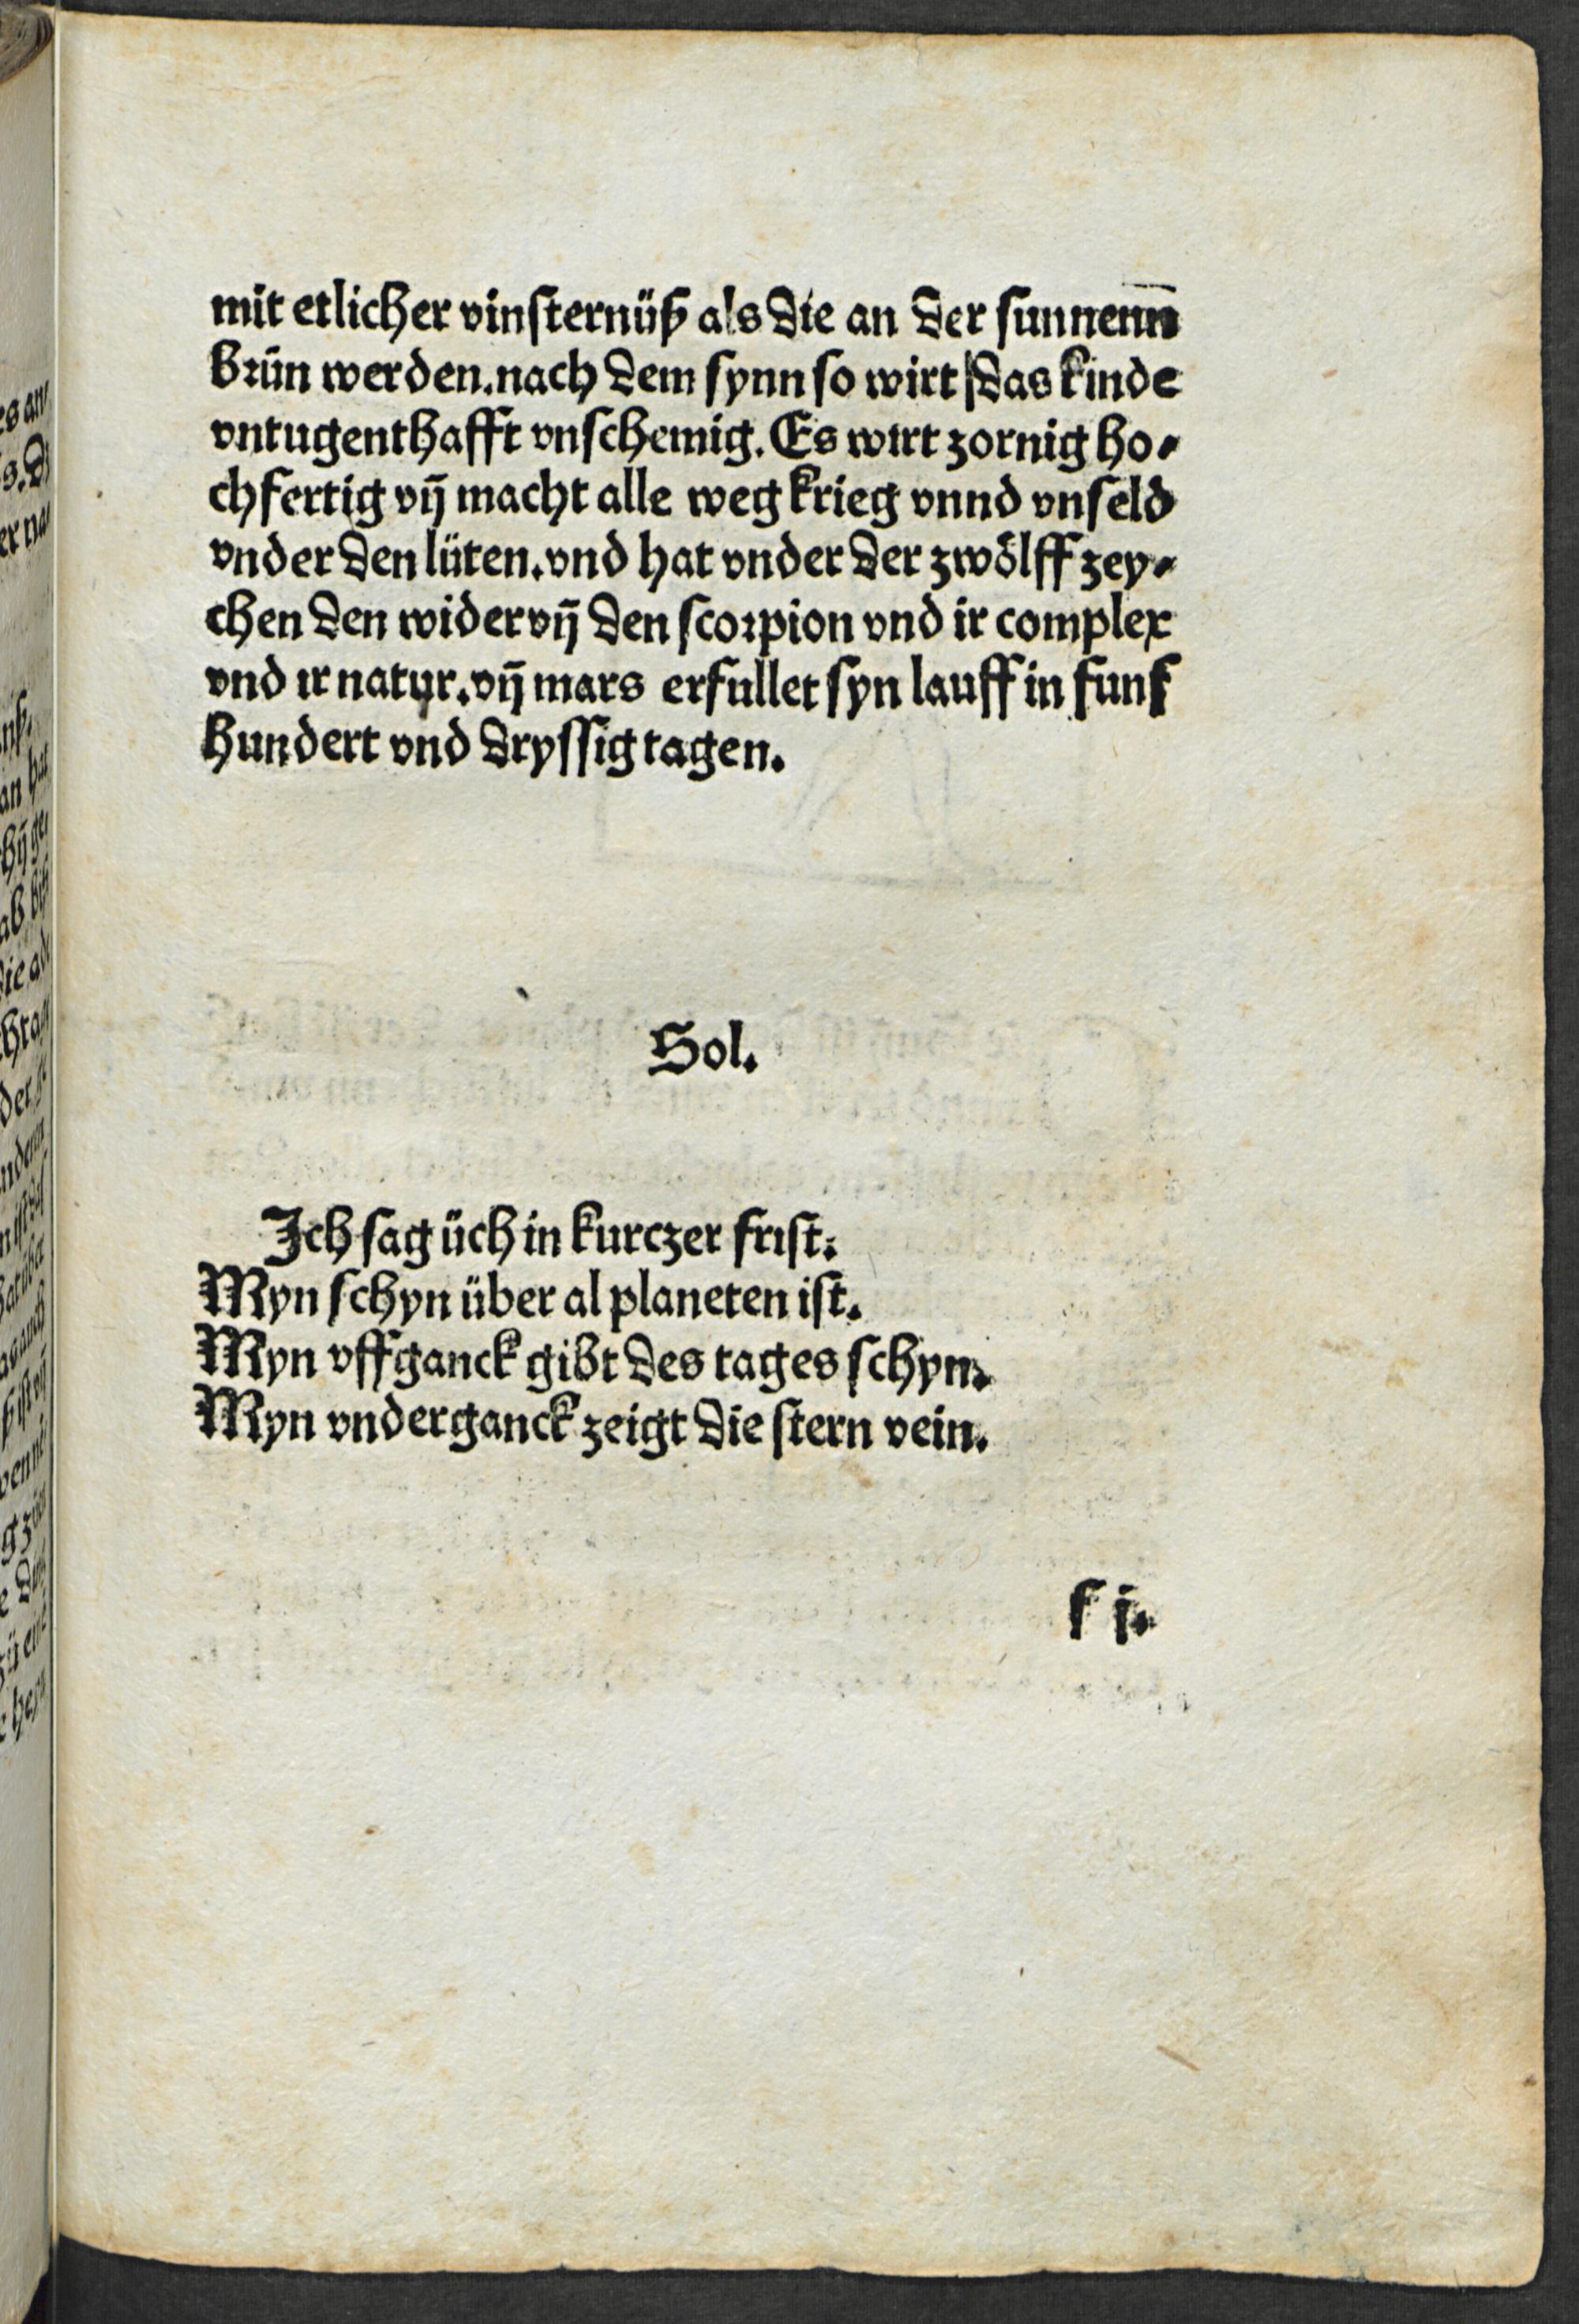 mit etlicher vinsternüß als die an der sunnenn̄
brün werden. nach dem synn so wirt das kinde
vntugenthafft vnschemig. Es wirt zornig ho⸗
chfertig vn̄ macht alle weg krieg vnnd vnseld
vnder den lüten. vnd hat vnder der zwölff zey⸗
chen den wider vn̄ den scorpion vnd ir complex
vnd ir natur. vn̄ mars erfullet syn lauff in funf
hundert vnd dryssig tagen.
Sol.
Ich sag üch in kurczer frist.
Myn schyn über al planeten ist.
Myn vffganck gibt des tages schyn.
Myn vnderganck zeigt die stern vein.
f j.